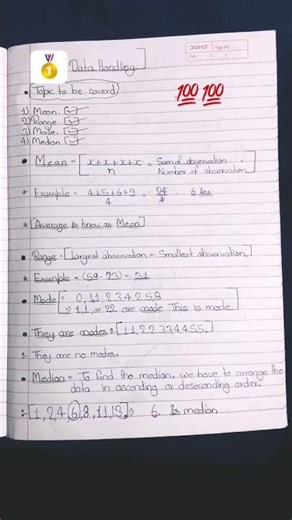 DOMS Page No.
1 Data Handling
Topic to be coverd
100 100
1) Mean.
2) Range.
3) Mode.
4) Median
Mean = x+x+x+x = Sum of observation
n Number of observation
* Example = 4+5+6+9 = 24 6
4 4
* [Average is know as Mean]
Range = [Largest observation - Smallest observation]
* Example = (59-93) = 31
Mode = 0,1,1,2,3,4,2,5,8
2 1,1, or 22 are mode This is mode
They are modes = [1,1,2,2,3,3,4,4,5,5.
They are no modes.
Median = To find the median, we have to arrange the
data in ascending or descending order.
[1,2,4,6,8,11,13] 6 is median